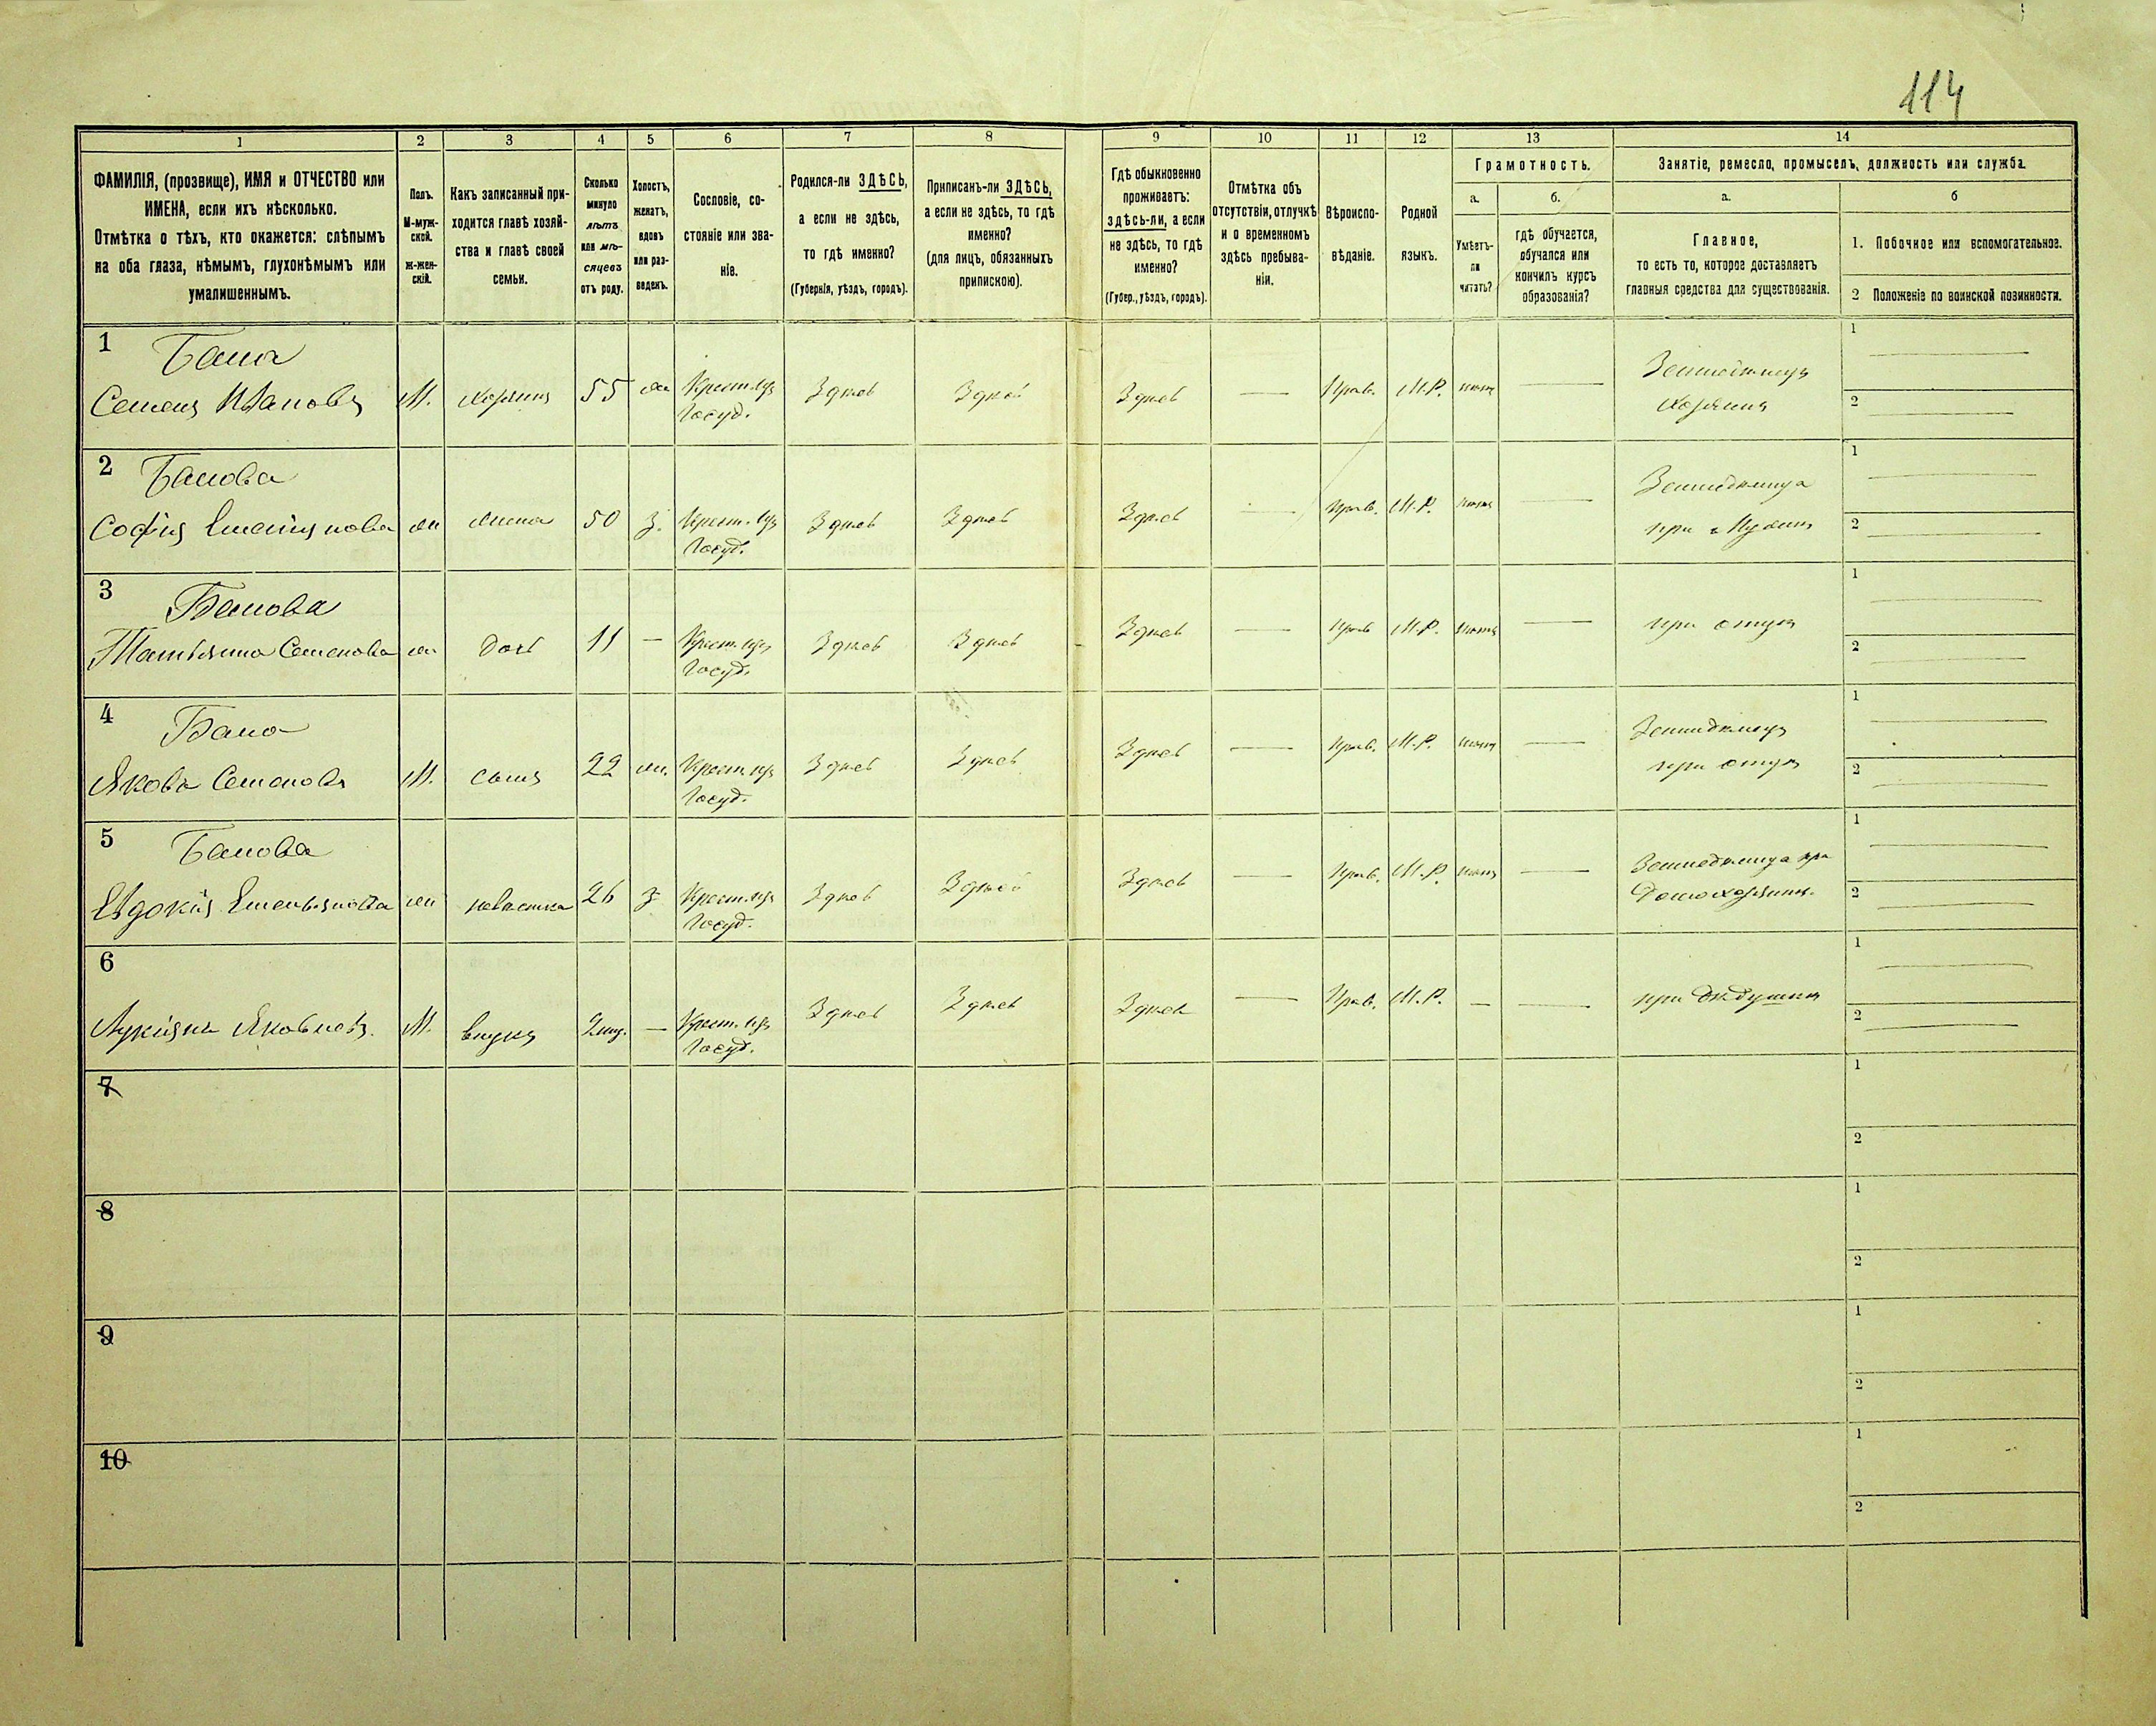 114
1 2 3 4 5 6 7 8 9 10 11 12 13 14
ФАМИЛІЯ, (прозвище), ИМЯ и ОТЧЕСТВО или
ИМЕНА, если ихъ нѣсколько.
Отмѣтка о тѣхъ, кто окажется: слѣпымъ
на оба глаза, нѣмымъ, глухонѣмымъ или
умалишеннымъ.
Полъ.
М-муж-
ской.
Ж-жен-
скій.
Какъ записанный при-
ходится главѣ хозяй-
ства и главѣ своей
семьи.
Сколько
минуло
лѣтъ
или мѣ-
сяцевъ
отъ роду.
Холостъ,
женатъ,
вдовъ
или раз-
веденъ.
Сословіе, со-
стояніе или зва-
ніе.
Родился-ли ЗДѢСЬ,
а если не здѣсь,
то гдѣ именно?
(Губернія, уѣздъ, городъ).
Приписанъ-ли ЗДѢСЬ,
а если не здѣсь, то гдѣ
именно?
(для лицъ, обязанныхъ
припискою).
Гдѣ обыкновенно
проживаетъ:
здѣсь-ли, а если
не здѣсь, то гдѣ
именно?
(Губер., уѣздъ, городъ).
Отмѣтка объ
отсутствіи, отлучкѣ
и о временномъ
здѣсь пребыва-
ніи.
Вѣроиспо-
вѣданіе.
Родной
языкъ.
Грамотность.
а.
Умѣетъ-
ли
читать?
б.
гдѣ обучается,
обучался или
кончилъ курсъ
образованія?
Занятіе, ремесло, промыселъ, должность или служба.
а.
Главное,
то есть то, которое доставляетъ
главныя средства для существованія.
б
1. Побочное или вспомогательное.
2 Положеніе по воинской повинности.
1
Семенъ Ивановъ М. хозяинъ 55 Здѣсь Здѣсь Здѣсь Прав. М.Р. нѣтъ
Хозяинъ
1
2
2 Банова
Софія жена 50 З. Здѣсь Здѣсь Здѣсь Прав. М.Р. нѣтъ
1
2
3 Банова
Татьяна Семенова дочь 11 — Здѣсь Здѣсь Здѣсь Прав М.Р. нѣтъ при отцѣ
1
2
4
Яковъ Семеновъ М. сынъ 22 Здѣсь Здѣсь Здѣсь Прав. М.Р. нѣтъ
при отцѣ
1
2
5 Банова
Евдокія Емельянова невѣстка 26 з Здѣсь Здѣсь Здѣсь Прав. М.Р. нѣтъ
Домохозяинѣ.
1
2
6
Лукіянъ Яковлевъ. М. внукъ — Здѣсь Здѣсь Здѣсь Прав. М.Р. — при дѣдушкѣ
1
2
7
1
2
8
1
2
9
1
2
10
1
2